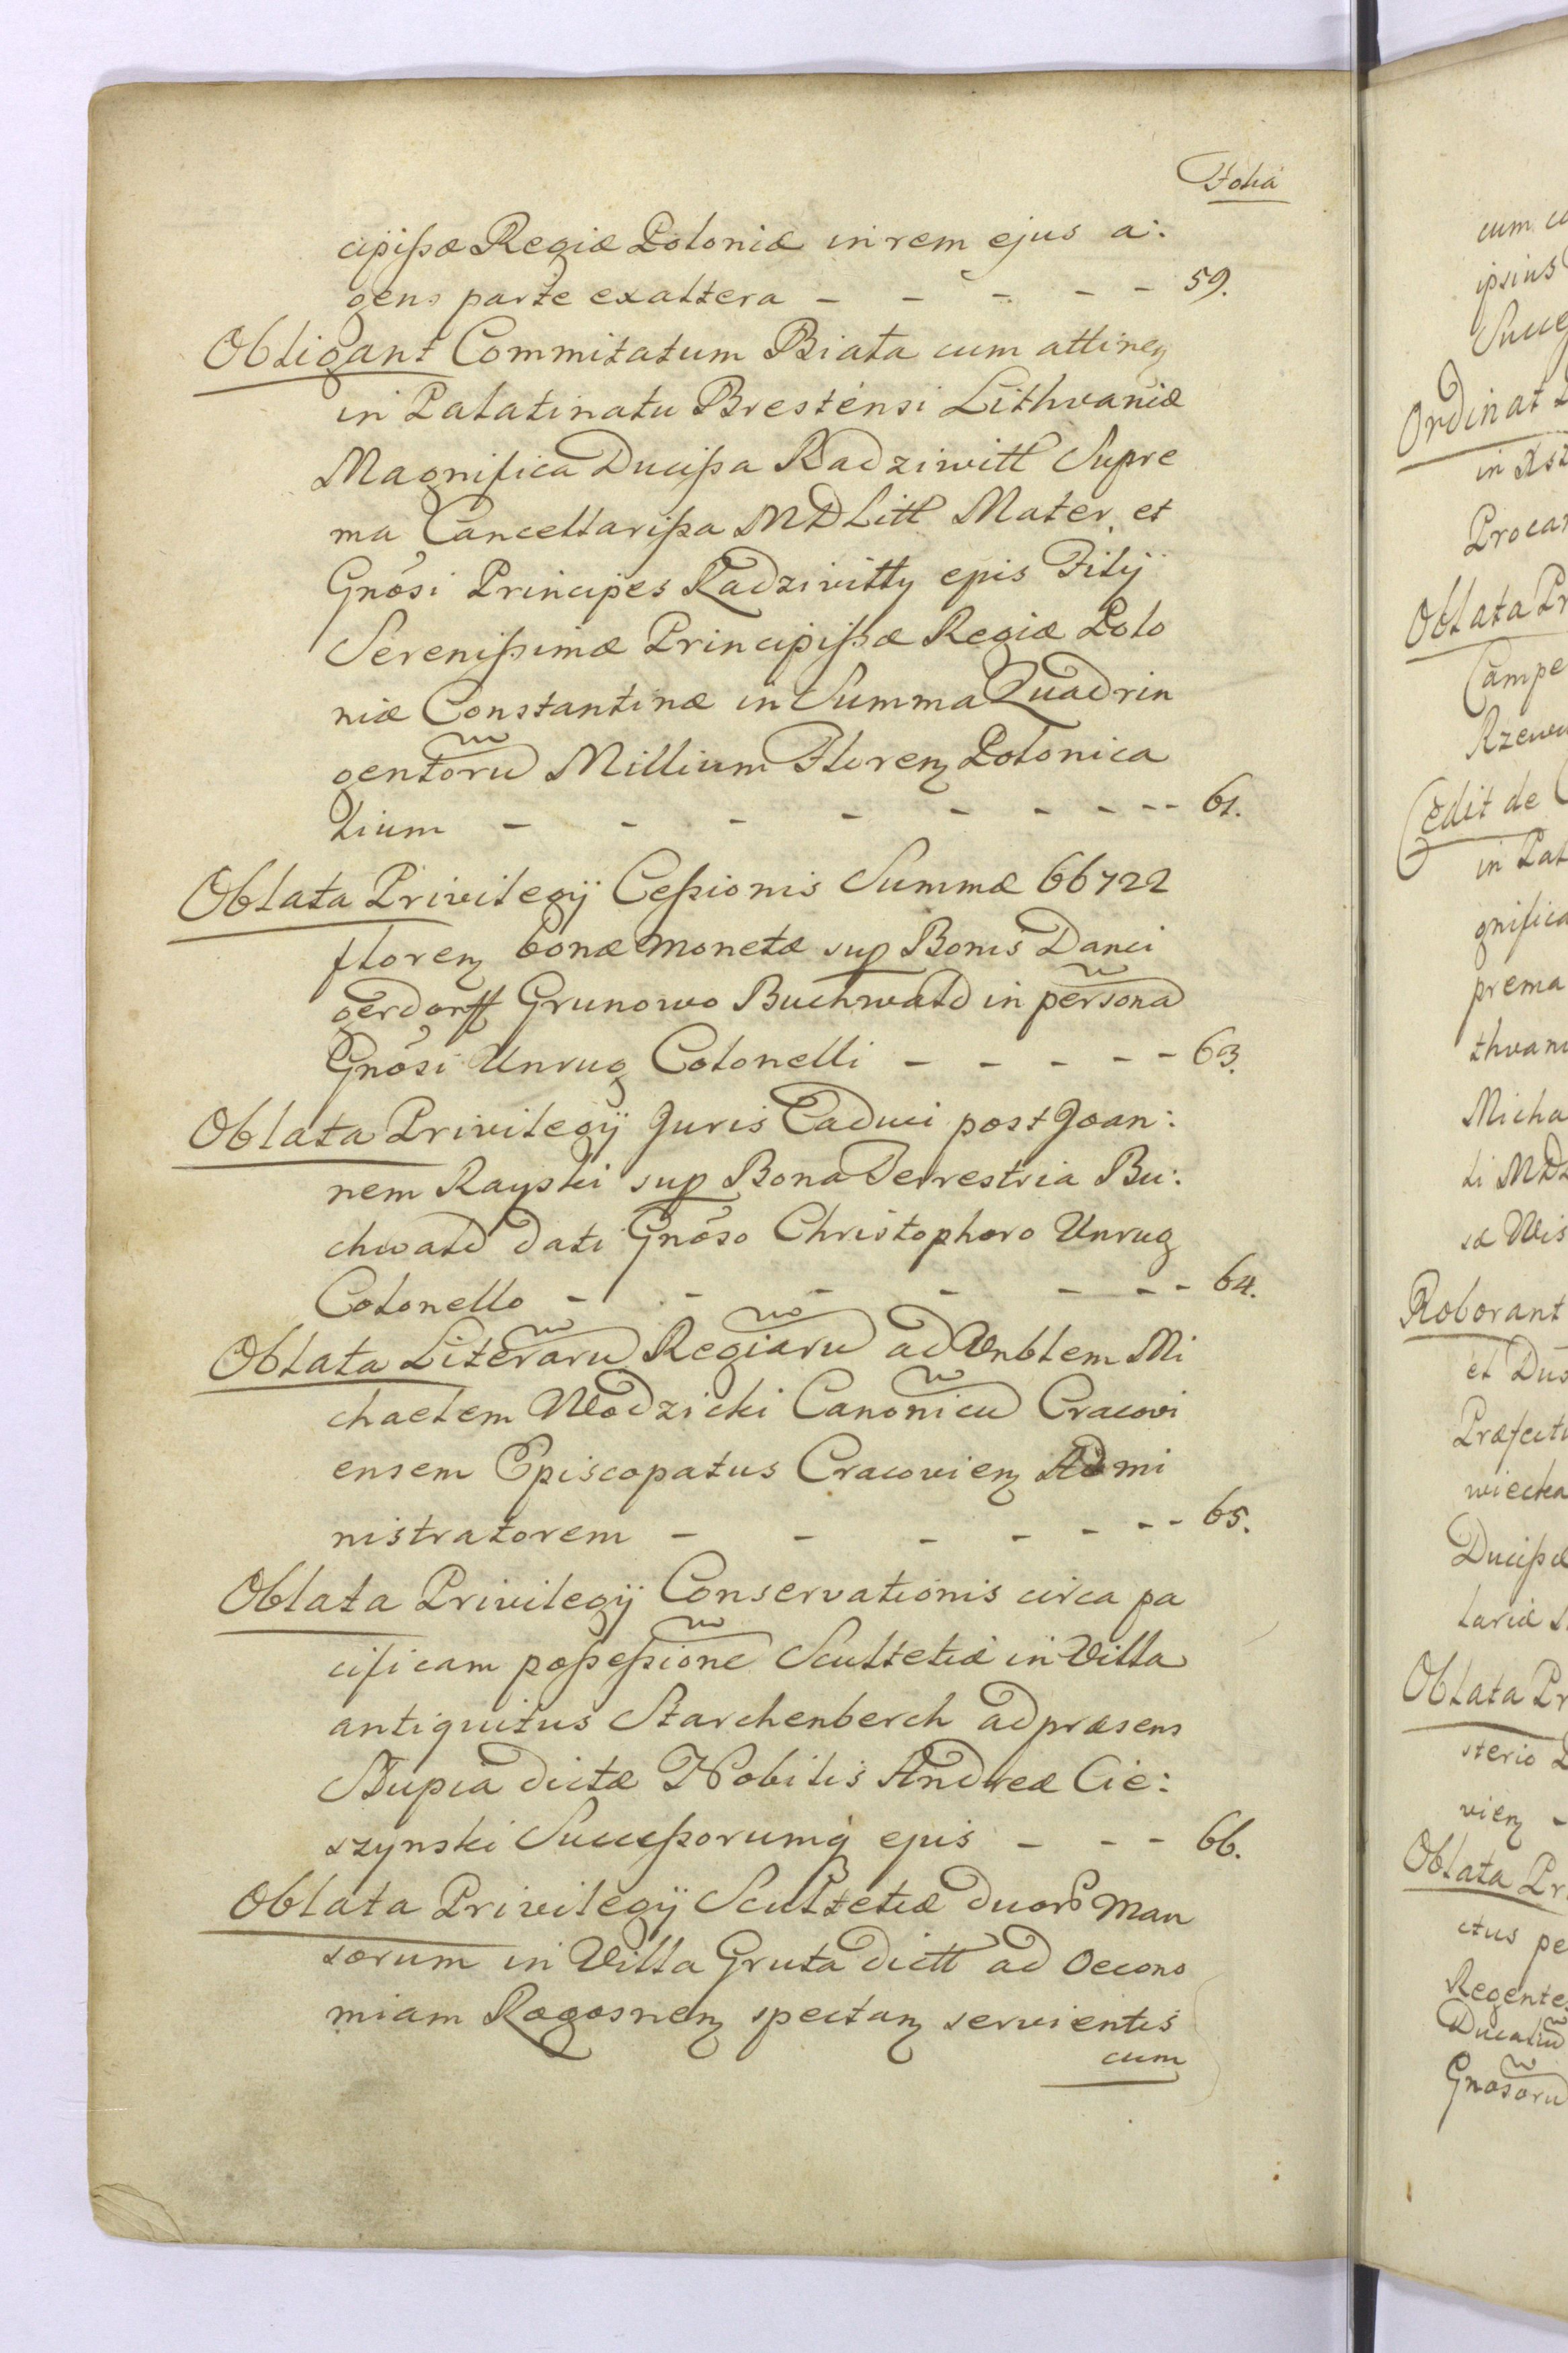 Folia
cipißæ Regiæ Poloniæ in rem ejus a:
gens parte exaltera - - - - - 59.
Obligant Commitatum Biała cum attinen
in Palatinatu Brestensi Lithvaniæ
Magnifica Ducißa Radziwill Supre
ma Cancellarißa MDLitt Mater et
Gnôsi Principes Radziwilly ejus Filij
Serenißimæ Principißæ Regiæ Polo
niæ Constantinæ in Summa Quadrin
gentorũ Millium Floren Polonica
lium - - - - - - - - 61.
Oblata Privilegij Ceßionis Summæ 66722
floren bonæ monetæ sup Bonis Danci
gerdorff Grunowo Buchwald in personã
Gnôsi Unrug Colonelli - - - - - 63.
Oblata Privilegij Juris Caduci post Joan:
nem Rayski sup Bona Terrestria Bu:
chwald dati Gnôso Christophoro Unrug
Colonello - - - - - - - 64.
Oblata Literarũ Regiarũ ad Vnblem Mi
chaelem Wodzicki Canonicũ Cracovi
ensem Episcopatus Cracovien Admi
nistratorem - - - - - - - 65.
Oblata Privilegij Conservationis circa pa
cificam poßeßionẽ Scultetiæ in Villa
antiquitus Starchenberch ad præsens
Słupia dictæ Nobilis Andreæ Cie:
szynski Succeßorumq ejus - - - 66.
Oblata Privilegij Scultetiæ duor Man
sorum in Villa Gruta dictt ad Oecono
miam Rogosnen spectan servientis
cum
cum
ipsius
Ordinat
in
Oblata Pr
Campe
Cedit de
in Pal
gnifica
prema
thvani
Micha
li MDL
sa Wis
Roborant
et
Præfectu
wiecka
Ducißæ
lariæ
Oblata Pr
sterio
vien -
Oblata Pr
ctus pe
Regentes
Ducaliũ
Gnosorũ